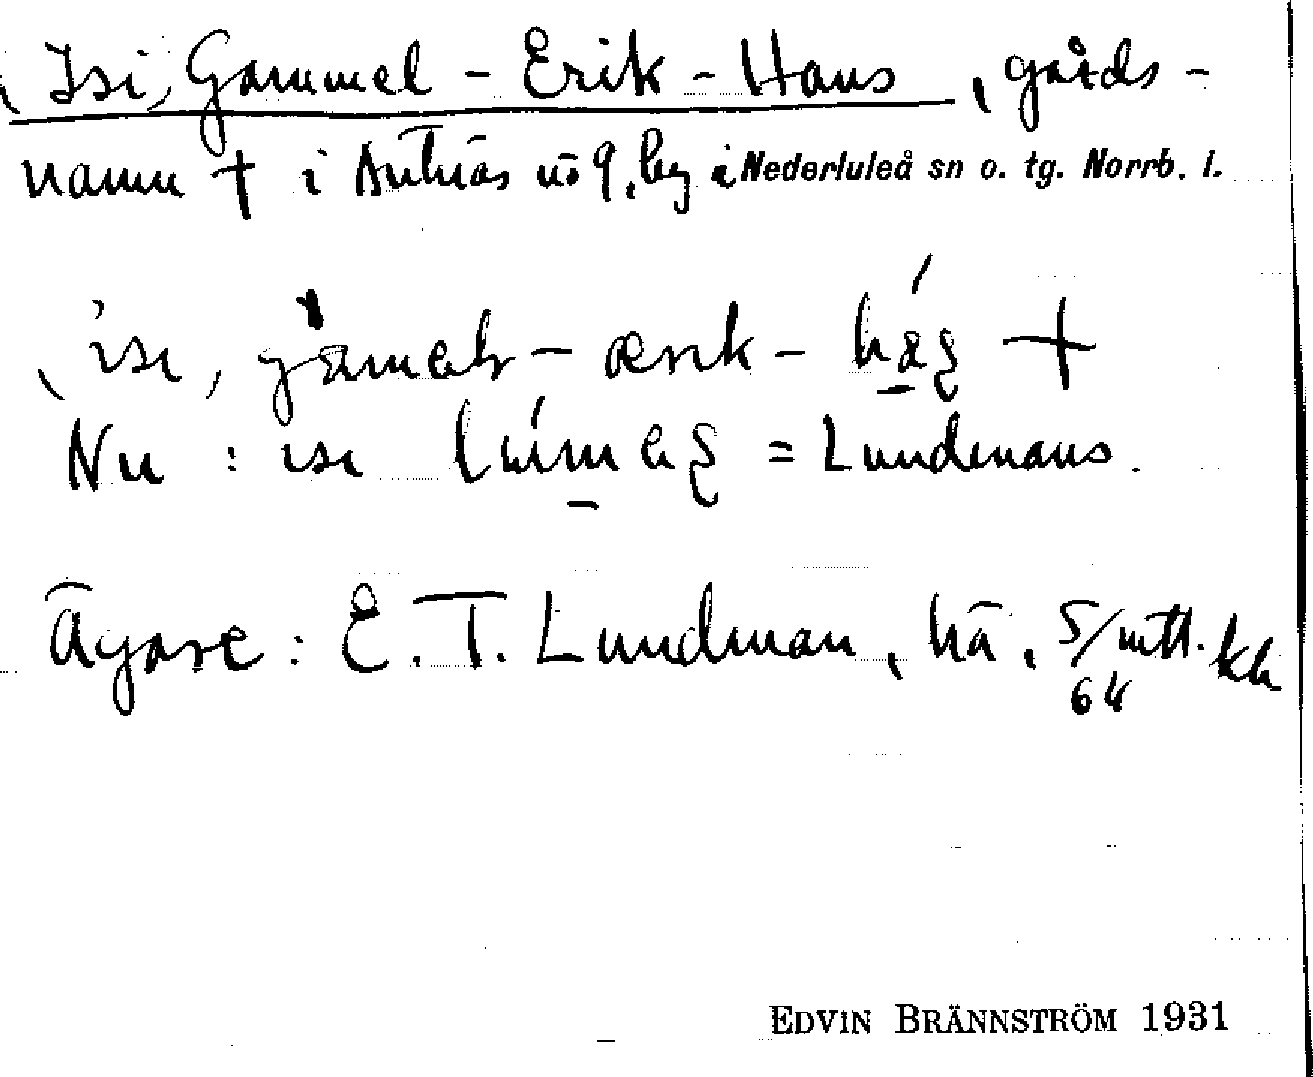 Isi, Gammel-Erik-Hans, gårds-
namn † i Antnäs no 9, by i Nederluleå sn o. tg. Norrb. l.
isi, gamels-ærik- †
Nu: isi = Lundmans.
Ägare: E. T. Lundman, hä, 5/64 mtl. kh
EDVIN BRÄNNSTRÖM 1931